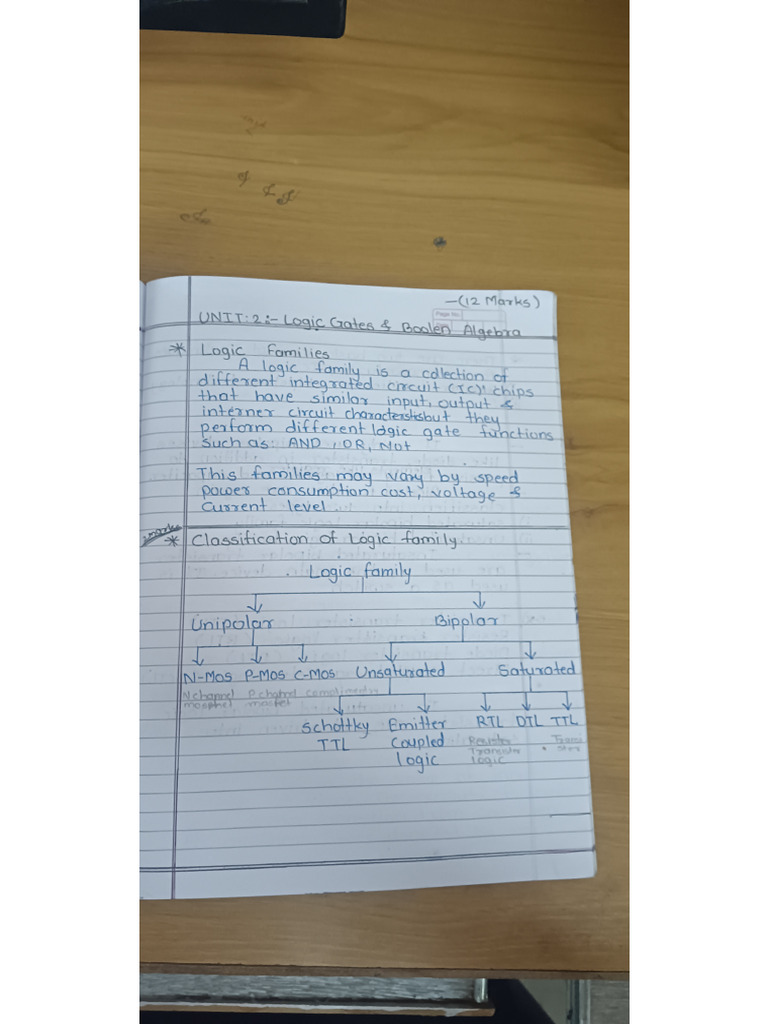 -(12 Marks)
Page No.
UNIT:2:- Logic Gates & Boolen Algebra
* Logic Families
A logic family is a collection of
different integrated circuit (IC) chips
that have similar input, output &
interner circuit characterstics but they
perform different logic gate functions
such as: AND, OR, Not
This families may vary by speed
power consumption cost, voltage &
Current level.
marks
* Classification of Logic family.
Logic family
Unipolar Bipolar
N-Mos P-Mos C-Mos Unsaturated Saturated
N channel P channel
mosfet
Schottky Emitter RTL DTL TTL
TTL Coupled Resistor
logic Transistor
logic